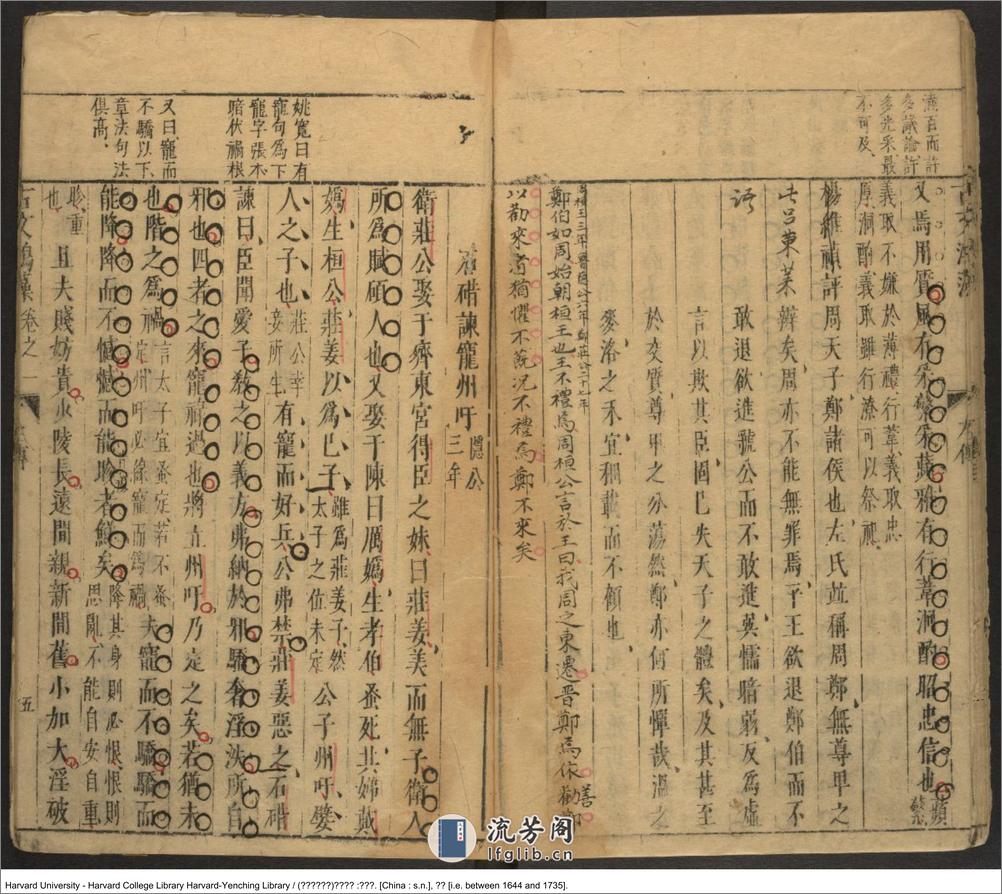 不可及、
又焉用質風有采蘩采蘋雅有行葦泂酌昭忠信也蘋蘩
義取不嫌於薄禮行葦義取忠
厚泂酌義取雖行潦可以祭祀
楊維禎評周天子鄭諸侯也左氏並稱周鄭無尊卑之
辨矣周亦不能無罪焉平王欲退鄭伯而不
敢退欲進虢公而不敢進巽懦暗弱反為虛
言以欺其臣固已失天子之體矣及其甚至
於交質尊卑之分蕩然鄭亦何所憚哉溫之
麥洛之禾宜稛載而不顧也
此呂東萊
語
鄭伯如周始朝桓王也王不禮焉周桓公言於王曰我周之東遷晉鄭焉依善鄭
以勸來者猶懼不蔇況不禮焉鄭不來矣
姚寬曰有
寵句為下
寵字張本
暗伏禍根
又曰寵而
不驕以下
章法句法
俱高、
石碏諫寵州吁隱公三年
衛莊公娶于齊東宮得臣之妹曰莊姜美而無子衛人
所為賦碩人也又娶于陳曰厲媯生孝伯蚤死其娣戴
媯生桓公莊姜以為己子雖為莊姜子然太子之位未定公子州吁嬖
人之子也莊公幸妾所生有寵而好兵公弗禁莊姜惡之石碏
諫曰臣聞愛子教之以義方弗納於邪驕奢淫泆所自
邪也四者之來寵祿過也將立州吁乃定之矣若猶未
也階之為禍言太子宜蚤定若不蚤定州吁必緣寵而為禍夫寵而不驕驕而
能降降而不憾憾而能眕者鮮矣降其身則必恨恨則思亂不能自安自重
眕重也且夫賤妨貴少陵長遠間親新間舊小加大淫破
卷之一
五
流芳阁
lfglib.cn
Harvard University - Harvard College Library Harvard-Yenching Library / (??????)???? :???. [China : s.n.], ?? [i.e. between 1644 and 1735].